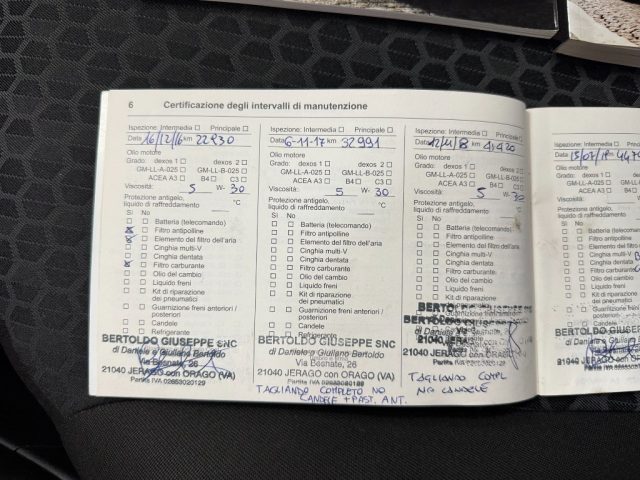 6 Certificazione degli intervalli di manutenzione
Ispezione: Intermedia Principale
Data 16/12/16 km 22830
Olio motore
Grado: dexos 1 dexos 2
GM-LL-A-025 GM-LL-B-025
ACEA A3 B4 C3
Viscosità: 5 W- 30
Protezione antigelo,
liquido di raffreddamento °C
Sì No
Batteria (telecomando)
Filtro antipolline
Elemento del filtro dell'aria
Cinghia multi-V
Cinghia dentata
Filtro carburante
Olio del cambio
Liquido freni
Kit di riparazione
dei pneumatici
Guarnizione freni anteriori /
posteriori
Candele
Refrigerante
BERTOLDO GIUSEPPE SNC
di Daniele e Giuliano Bertoldo
Via Besnate, 26
21040 JERAGO con ORAGO (VA)
Partita IVA 02853020129
Ispezione: Intermedia Principale
Data 6-11-17 km 32991
Olio motore
Grado: dexos 1 dexos 2
GM-LL-A-025 GM-LL-B-025
ACEA A3 B4 C3
Viscosità: 5 W- 30
Protezione antigelo,
liquido di raffreddamento °C
Sì No
Batteria (telecomando)
Filtro antipolline
Elemento del filtro dell'aria
Cinghia multi-V
Cinghia dentata
Filtro carburante
Olio del cambio
Liquido freni
Kit di riparazione
dei pneumatici
Guarnizione freni anteriori /
posteriori
Candele
Refrigerante
BERTOLDO GIUSEPPE SNC
di Daniele e Giuliano Bertoldo
Via Besnate, 26
21040 JERAGO con ORAGO (VA)
Partita IVA 02853020129
TAGLIANDO COMPLETO NO
CANDELE + PAST. ANT.
Ispezione: Intermedia Principale
Data km
Olio motore
Grado: dexos 1 dexos 2
GM-LL-A-025 GM-LL-B-025
ACEA A3 B4 C3
Viscosità: 5 W- 30
Protezione antigelo,
liquido di raffreddamento °C
Sì No
Batteria (telecomando)
Filtro antipolline
Elemento del filtro dell'aria
Cinghia multi-V
Cinghia dentata
Filtro carburante
Olio del cambio
Liquido freni
Kit di riparazione
dei pneumatici
Guarnizione freni anteriori /
posteriori
BERTOLDO GIUSEPPE SNC
di Daniele e Giuliano Bertoldo
21040 JERAGO con ORAGO (VA)
TAGLIANDO COMPL
NO CANDELE
Ispezione: Intermedia
Data km
Olio motore
Grado: dexos 1
GM-LL-A-025
ACEA A3
Viscosità:
Protezione antigelo,
liquido di raffreddamento
Sì No
Batteria (telecomando)
Filtro antipolline
Elemento del filtro
Cinghia multi-V
Cinghia dentata
Filtro carburante
Olio del cambio
Liquido freni
Kit di riparazione
dei pneumatici
BERTOLDO GIUSEPPE
21040 JERAGO con ORAGO